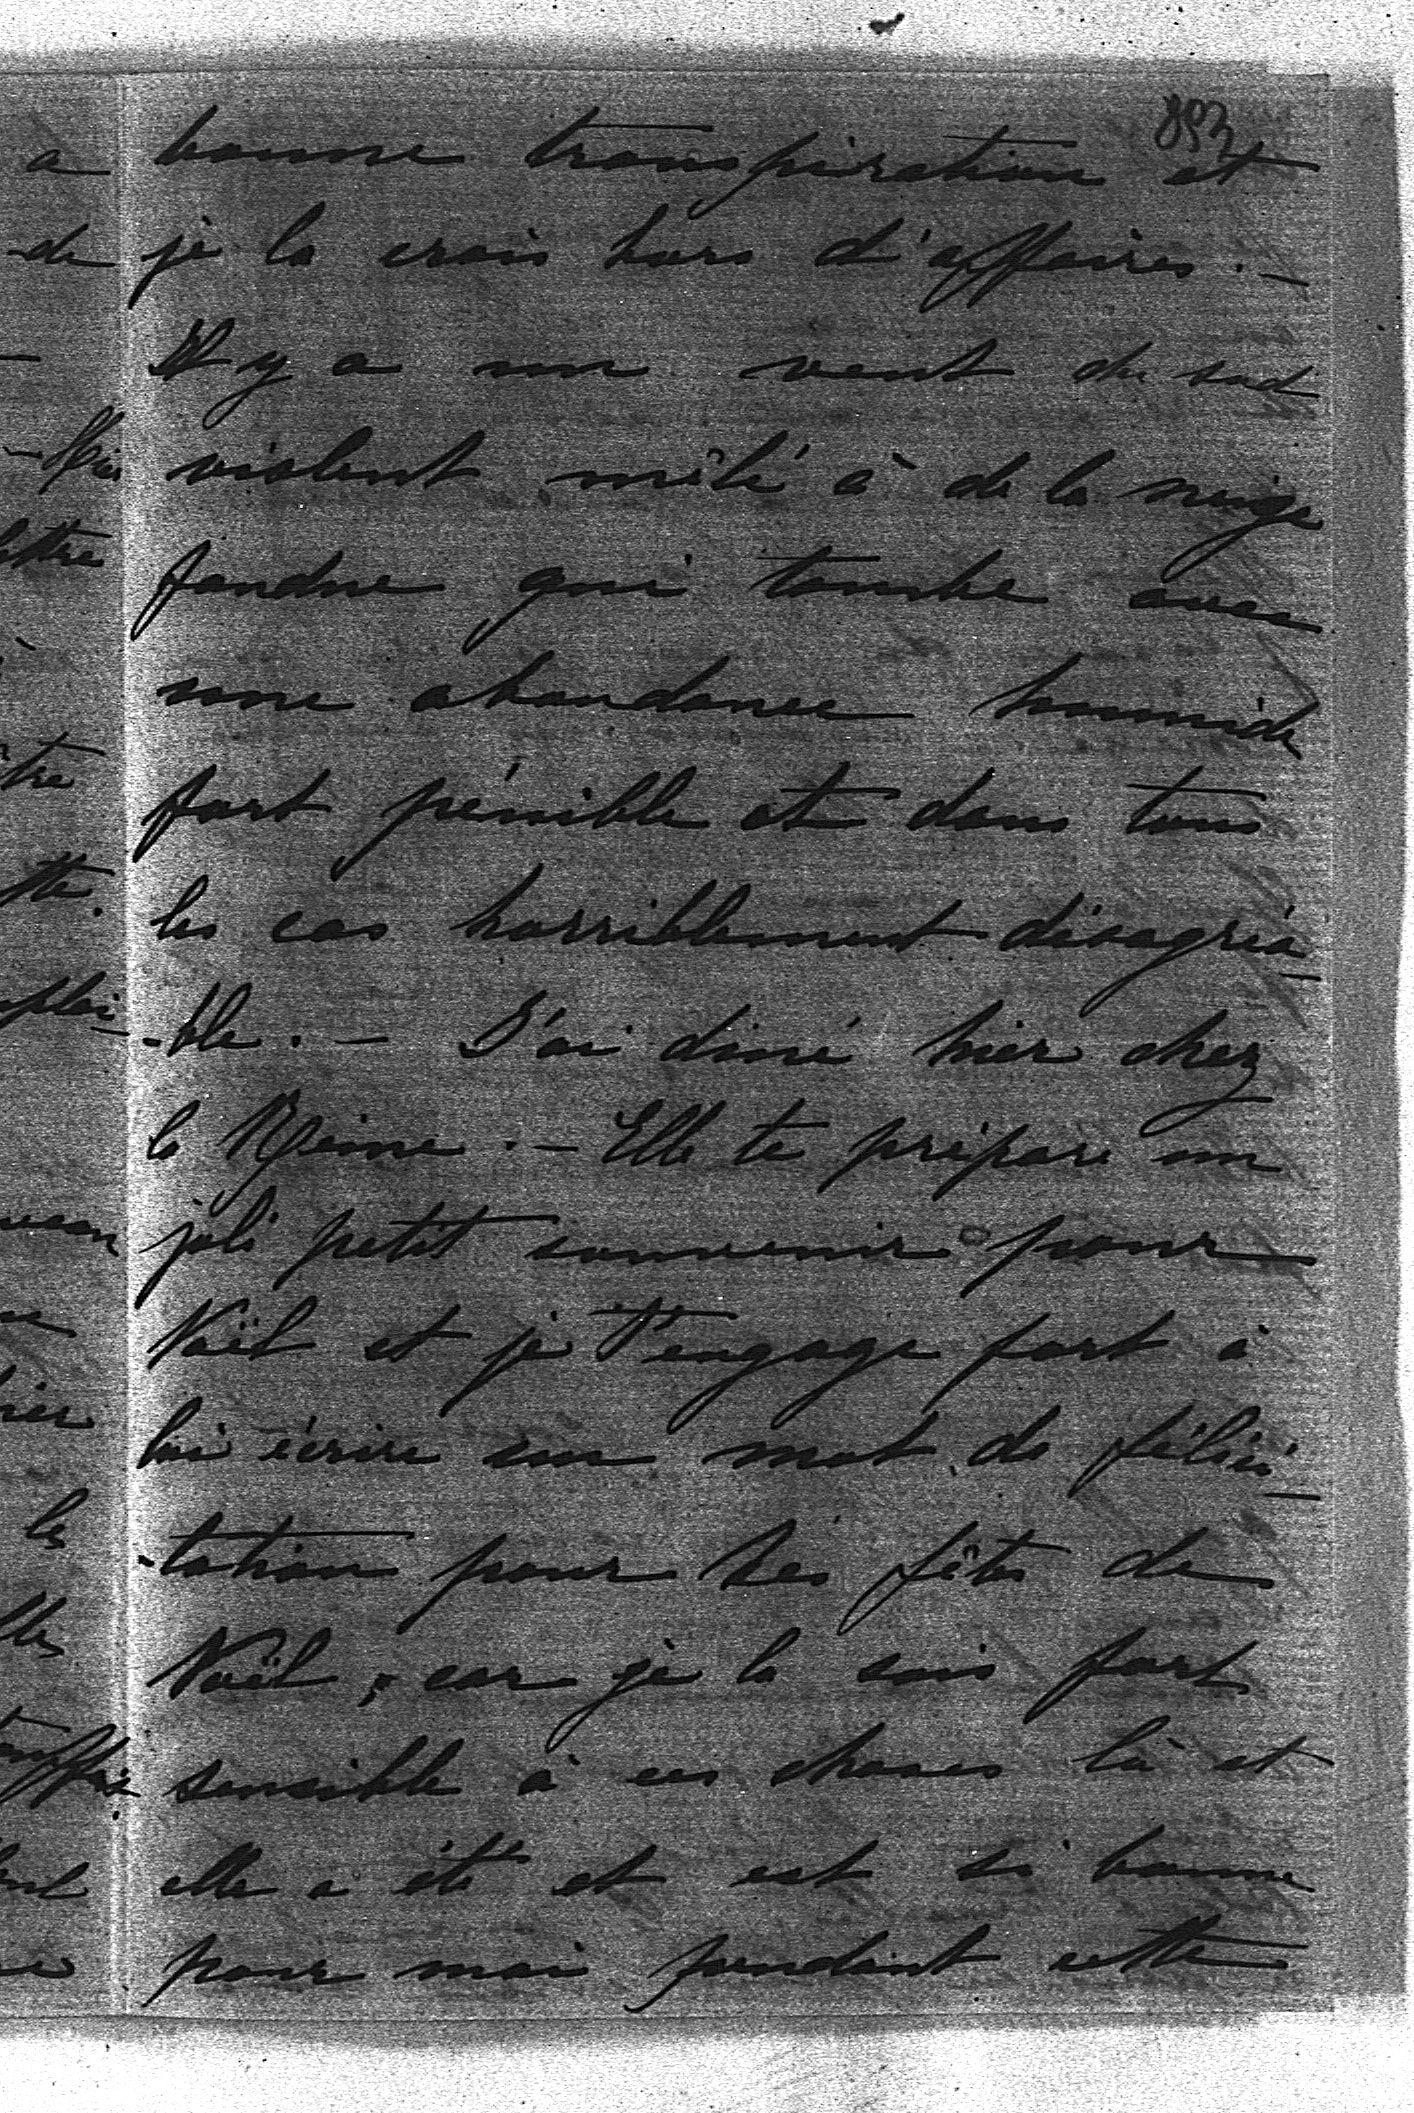 893
bonne transpiration et
je la crois hors d'affaires. —
Il y a un vent du sud
violent mêlé à de la neige
fondue qui tombe avec
une abondance humide
fort pénible et dans tous
les cas horriblement désagréa-
-ble. — J'ai diné hier chez
la Reine. — Elle te prépare un
joli petit souvenir pour
Noël et je t'engage fort à
lui écrire un mot de félici-
-tation pour les fêtes de
Noël, car je la sais fort
sensible à ces choses là et
elle a été et est si bonne
pour moi pendant cette